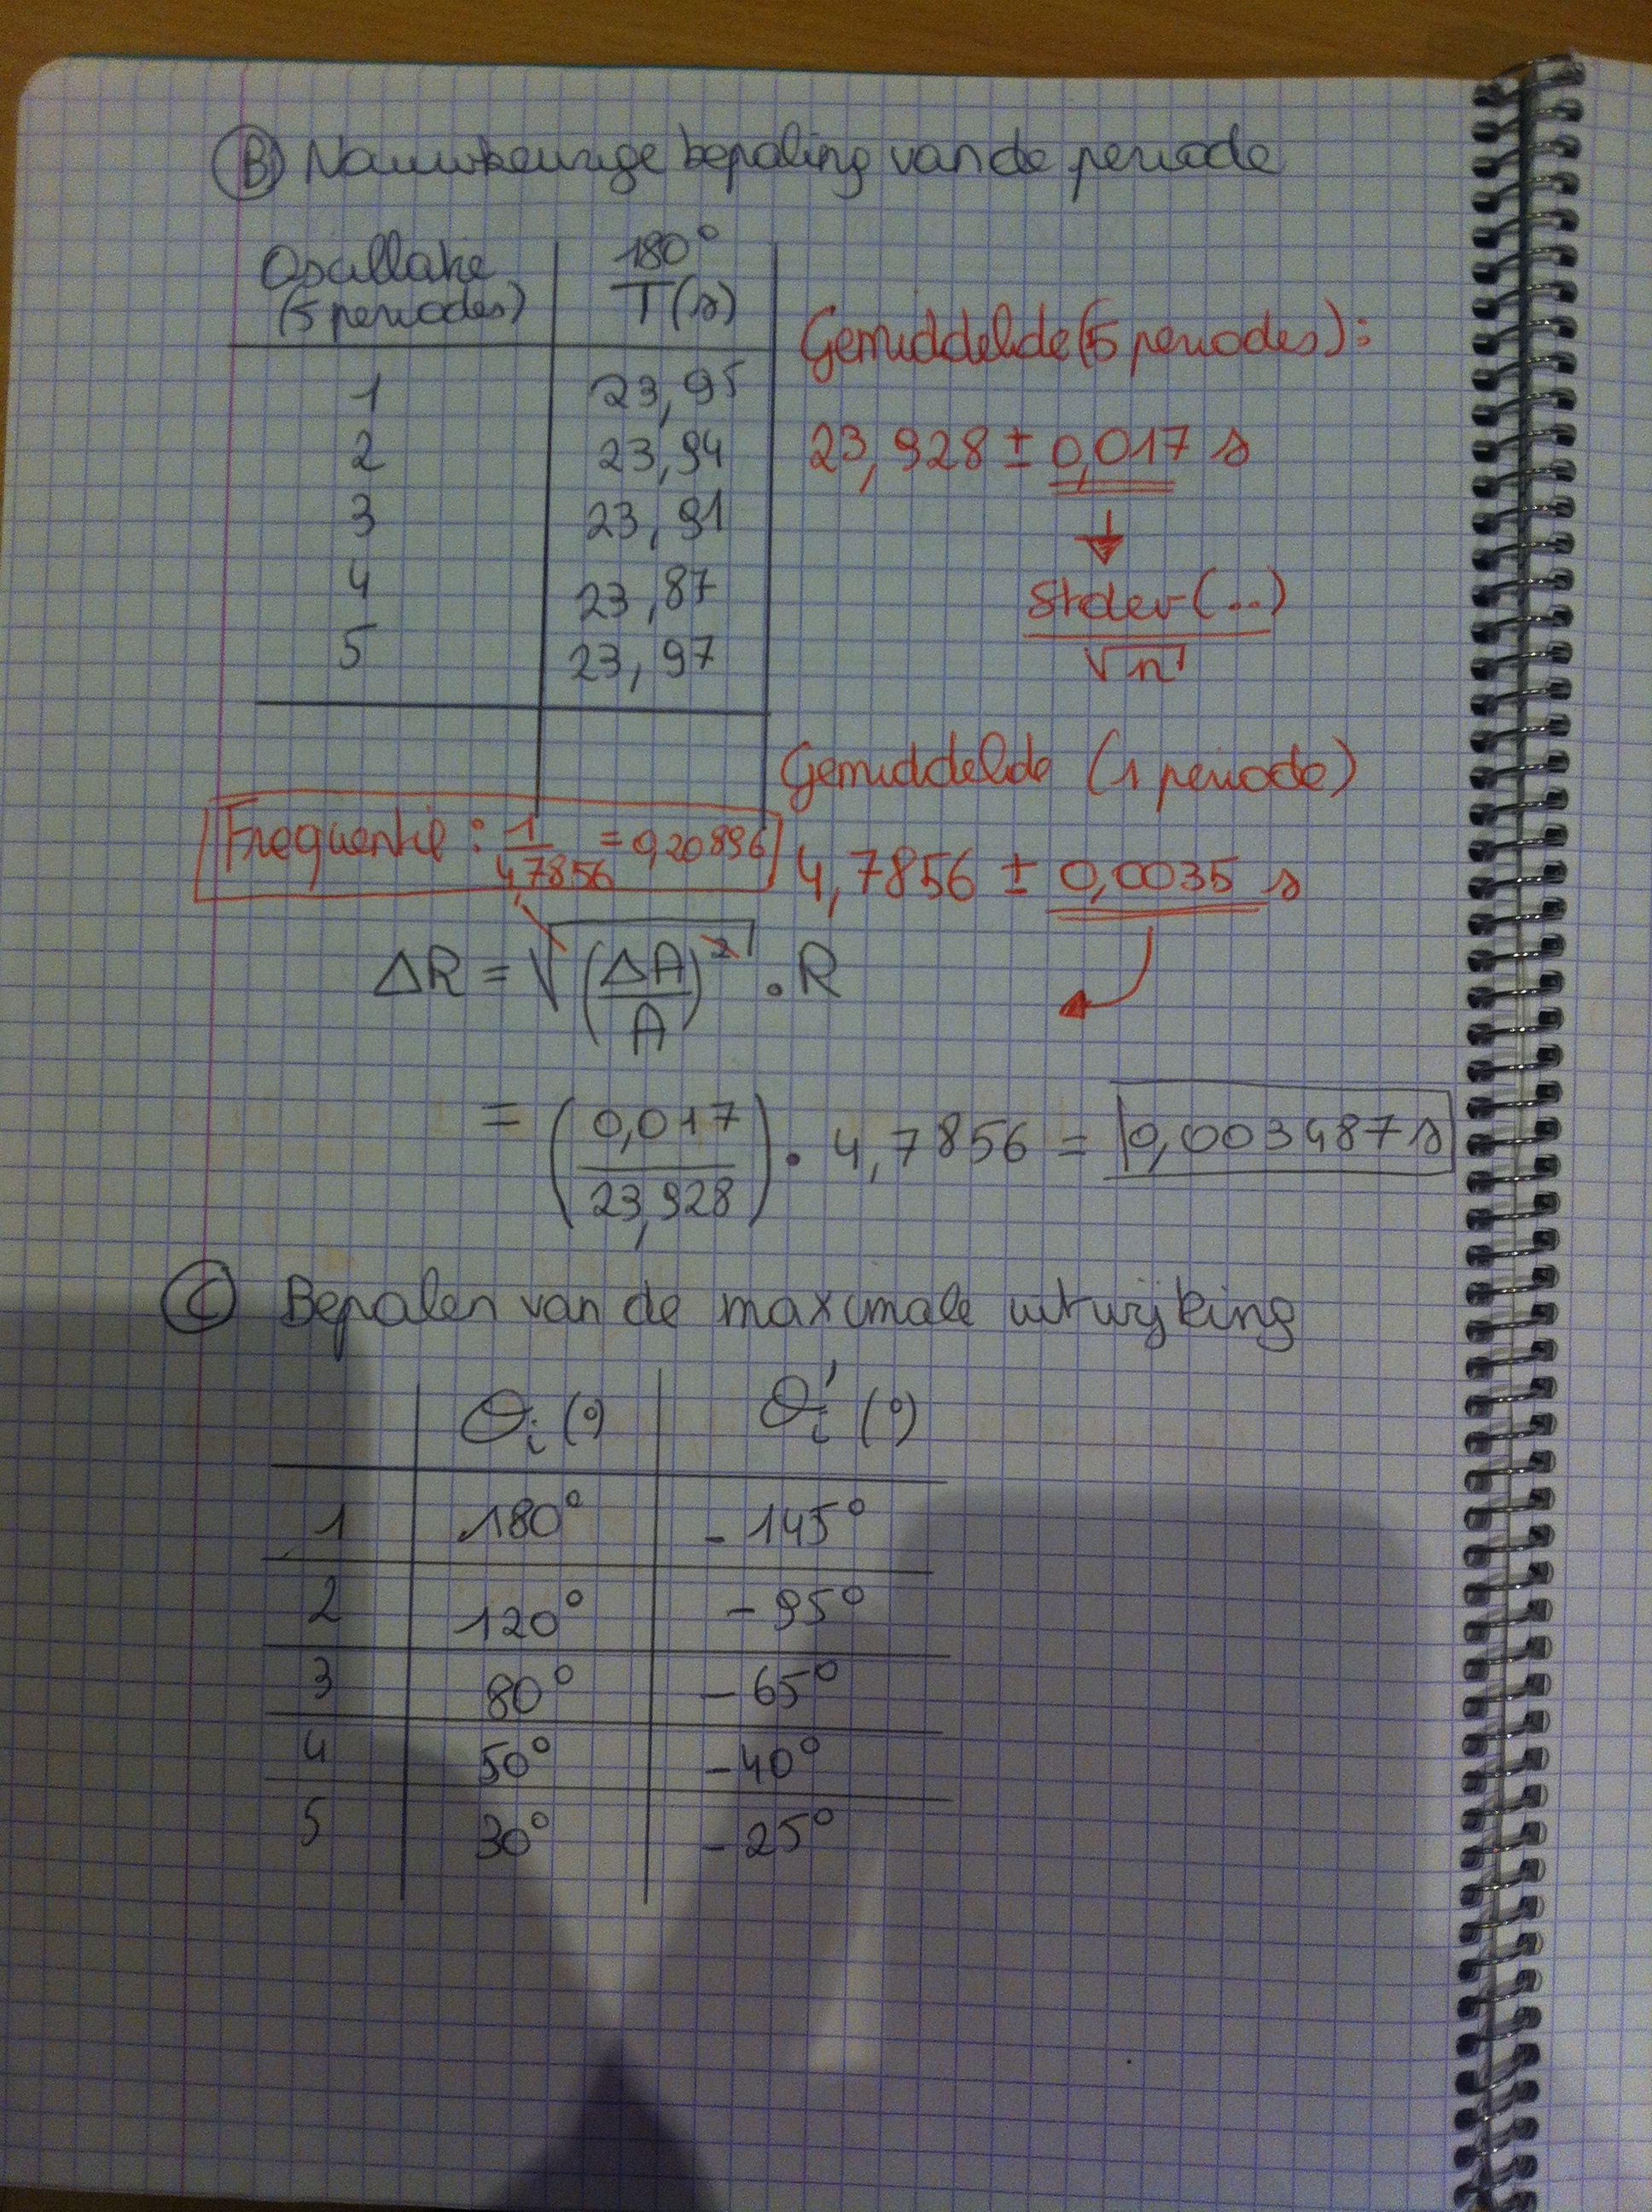 B Nauwkeurige bepaling van de periode
Oscillatie (5 periodes) | 180° T(s)
1 | 23,95
2 | 23,94
3 | 23,91
4 | 23,87
5 | 23,97
Gemiddelde (5 periodes):
23,928 ± 0,017 s
Stdev(...)
√n
Gemiddelde (1 periode)
4,7856 ± 0,0035 s
Frequentie : 1/4,7856 = 0,20896
ΔR = √(ΔA/A)² . R
= (0,017/23,928) . 4,7856 = 0,003487 s
C Bepalen van de maximale uitwijking
θi (°) | θi' (°)
1 | 180° | -145°
2 | 120° | -95°
3 | 80° | -65°
4 | 50° | -40°
5 | 30° | -25°